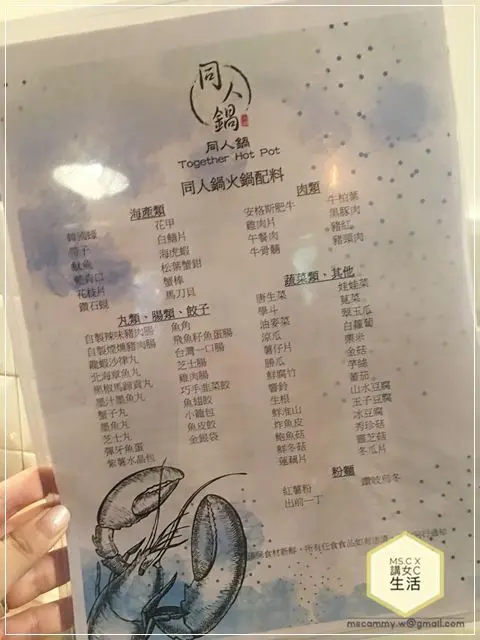 同人鍋
同人鍋
Together Hot Pot
同人鍋火鍋配料
海產類
韓國蠔
帶子
魷魚
花枝片
鑽石蜆
花甲
白鱔片
海虎蝦
松葉蟹鉗
蟹棒
馬刀貝
肉類
安格斯肥牛
雞肉片
午餐肉
牛骨髓
牛柏葉
黑豚肉
豬紅
豬頸肉
丸類、腸類、餃子
自製辣味豬肉腸
自製煙燻豬肉腸
龍蝦沙律丸
北海章魚丸
黑椒馬蹄貢丸
墨汁墨魚丸
蟹子丸
墨魚丸
芝士丸
彈牙魚蛋
紫薯水晶包
魚角
飛魚籽魚蛋腸
台灣一口腸
芝士腸
雞肉腸
巧手韭菜餃
魚翅餃
小籠包
魚皮餃
金銀袋
蔬菜類、其他
唐生菜
學斗
油麥菜
涼瓜
薯仔片
勝瓜
鮮腐竹
響鈴
生根
鮮淮山
炸魚皮
鮑魚菇
鮮冬菇
蓮藕片
娃娃菜
莧菜
翠玉瓜
白蘿蔔
粟米
金菇
芋絲
蕃茄
山水豆腐
玉子豆腐
冰豆腐
秀珍菇
靈芝菇
冬瓜片
粉麵
紅薯粉
出前一丁
讚岐烏冬
食材新鮮，所有任食食品如有
MS.C X
講女C
生活
mscammy.w@gmail.com